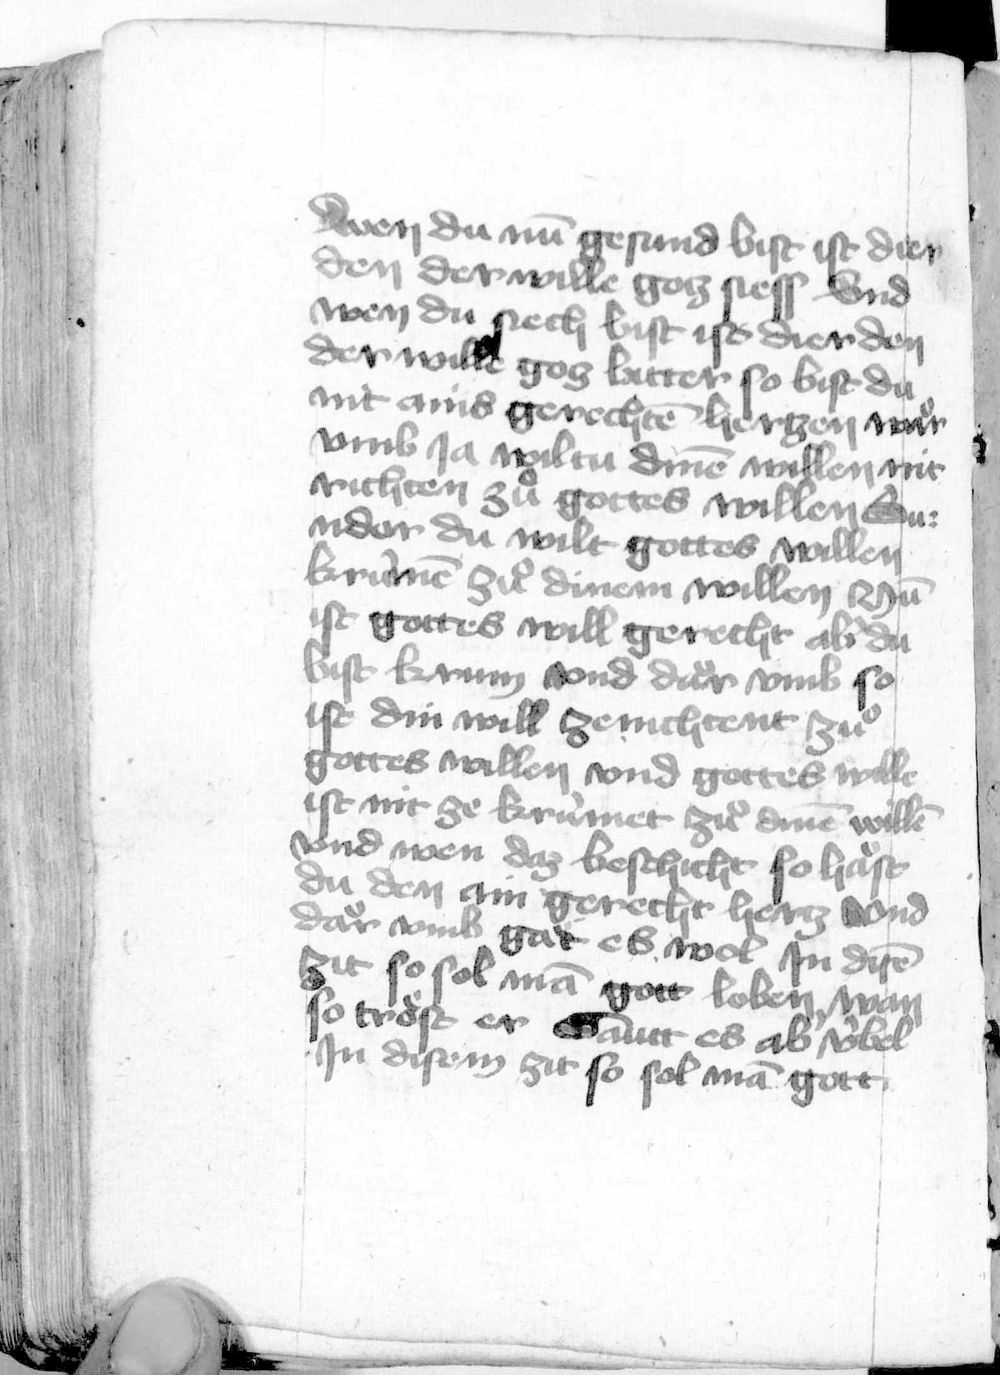 Wen du nū gesund bist ist dier
den der wille gotz siess Vnd
wen du siech bist ist dier den
der wille gotz bitter so bist du
nit ains gerechtē hertzen waͦr
vmb Ja wiltu dinē willen nit
richten zuͦ gottes willen Su:
nder du wilt gottes willen
krúmē zuͦ dinem willen Nū
ist gottes will gerecht ab' du
bist krum vnd daͦr vmb so
ist din will zerichtent zuͦ
gottes willen vnd gottes wille
ist nit ze krúmet zuͦ dinē willē
vnd wen daz beschicht so haͦst
du den ain gerecht hertz vnd
daͦr vmb gat es wol In disē
zit so sol mā gott loben wan
so troͤst er Gautt es ab' v́bel
In disem zit so sol mā gott